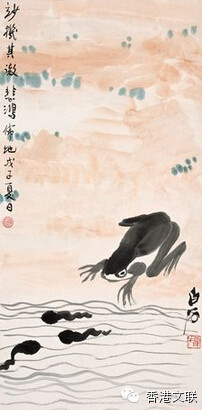 妙機其微悲鴻佈地戊子夏日
白石
香港文联